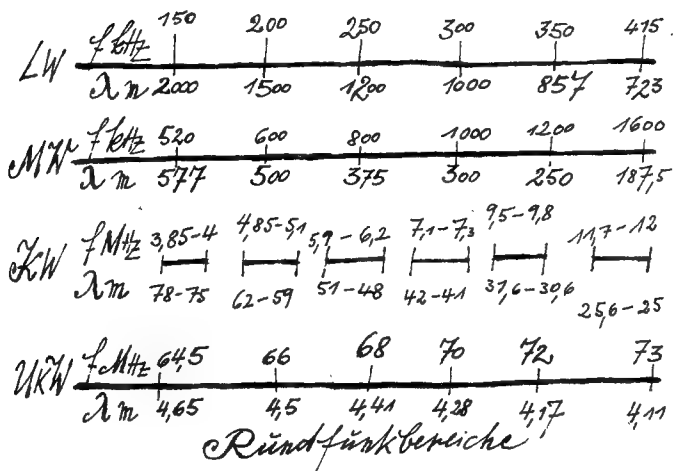 f kHz 150 200 250 300 350 415
LW
λ m 2000 1500 1200 1000 857 723
f kHz 520 600 800 1000 1200 1600
MW
λ m 577 500 375 300 250 187,5
f MHz 3,85-4 4,85-5,1 5,9-6,2 7,1-7,3 9,5-9,8 11,7-12
KW
λ m 78-75 62-59 51-48 42-41 31,6-30,6 25,6-25
f MHz 64,5 66 68 70 72 73
UKW
λ m 4,65 4,5 4,41 4,28 4,17 4,11
Rundfunkbereiche